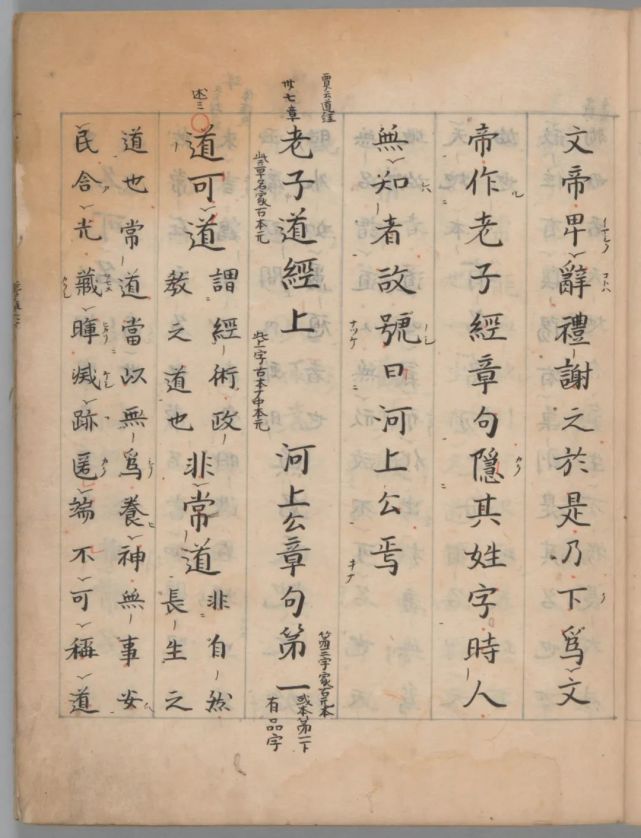 文帝卑辭禮謝之於是乃下爲文
帝作老子經章句隱其姓字時人
無知者故號曰河上公焉
老子道經上 河上公章句第一
道可道 謂經術政
教之道也 非常道 非自然
長生之
道也常道當以無爲養神無事安
民含光藏暉滅跡匿端不可稱道
賈云道経
卅七章
述三
此章名家古本元
此上字古本丁中本元
或本第一下
有品字